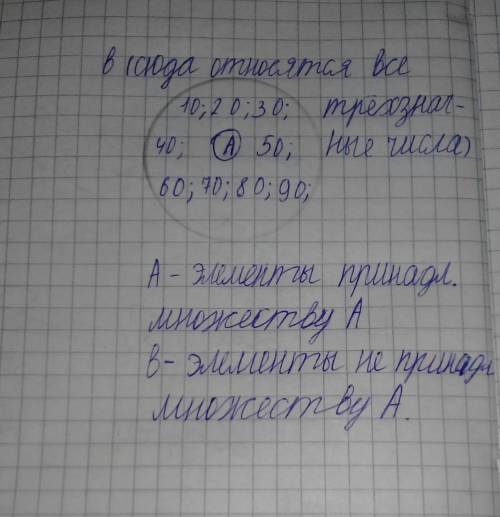 В (сюда относятся все
10; 20; 30; трехznач-
40; А 50; ные числа)
60; 70; 80; 90;
А - элементы принадл.
множеству А
В - элементы не принадл
множеству А.